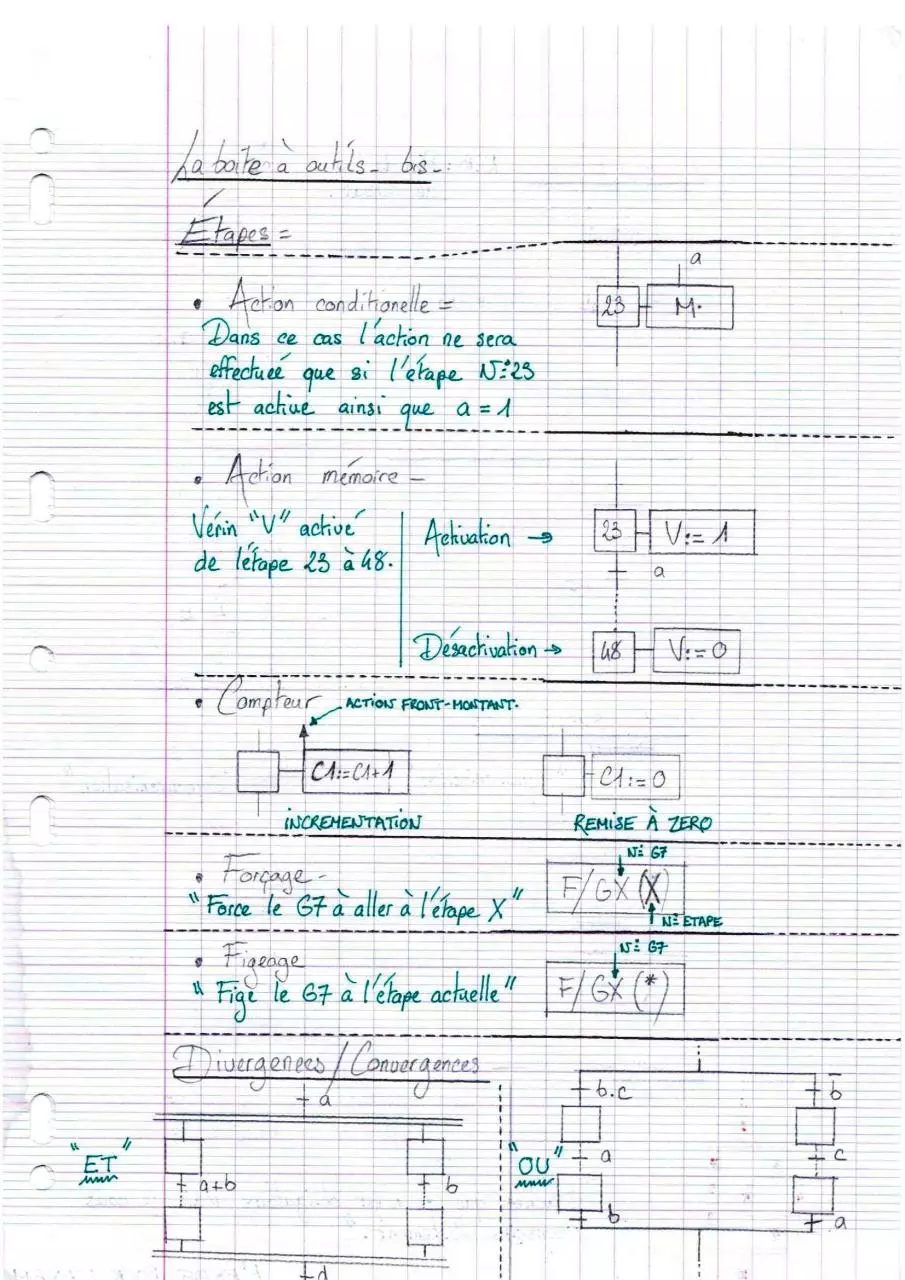 La boite à outils - bis -
Étapes =
• Action conditionelle =
Dans ce cas l'action ne sera
effectuée que si l'étape N°23
est active ainsi que a = 1
a
23 M.
• Action mémoire -
Vérin "V" activé
de l'étape 23 à 48.
Activation →
23 V:= 1
a
Désactivation →
48 V:= 0
• Compteur
ACTION FRONT-MONTANT.
C1:= C1+1
INCREMENTATION
C1:= 0
REMISE À ZERO
• Forçage -
"Force le G7 à aller à l'étape X"
N° G7
F/GX (X)
N° ETAPE
• Figeage
"Fige le G7 à l'étape actuelle"
N° G7
F/GX (*)
Divergences / Convergences
"ET"
a
a+b b
d
"OU"
b.c b̅
a c
b a